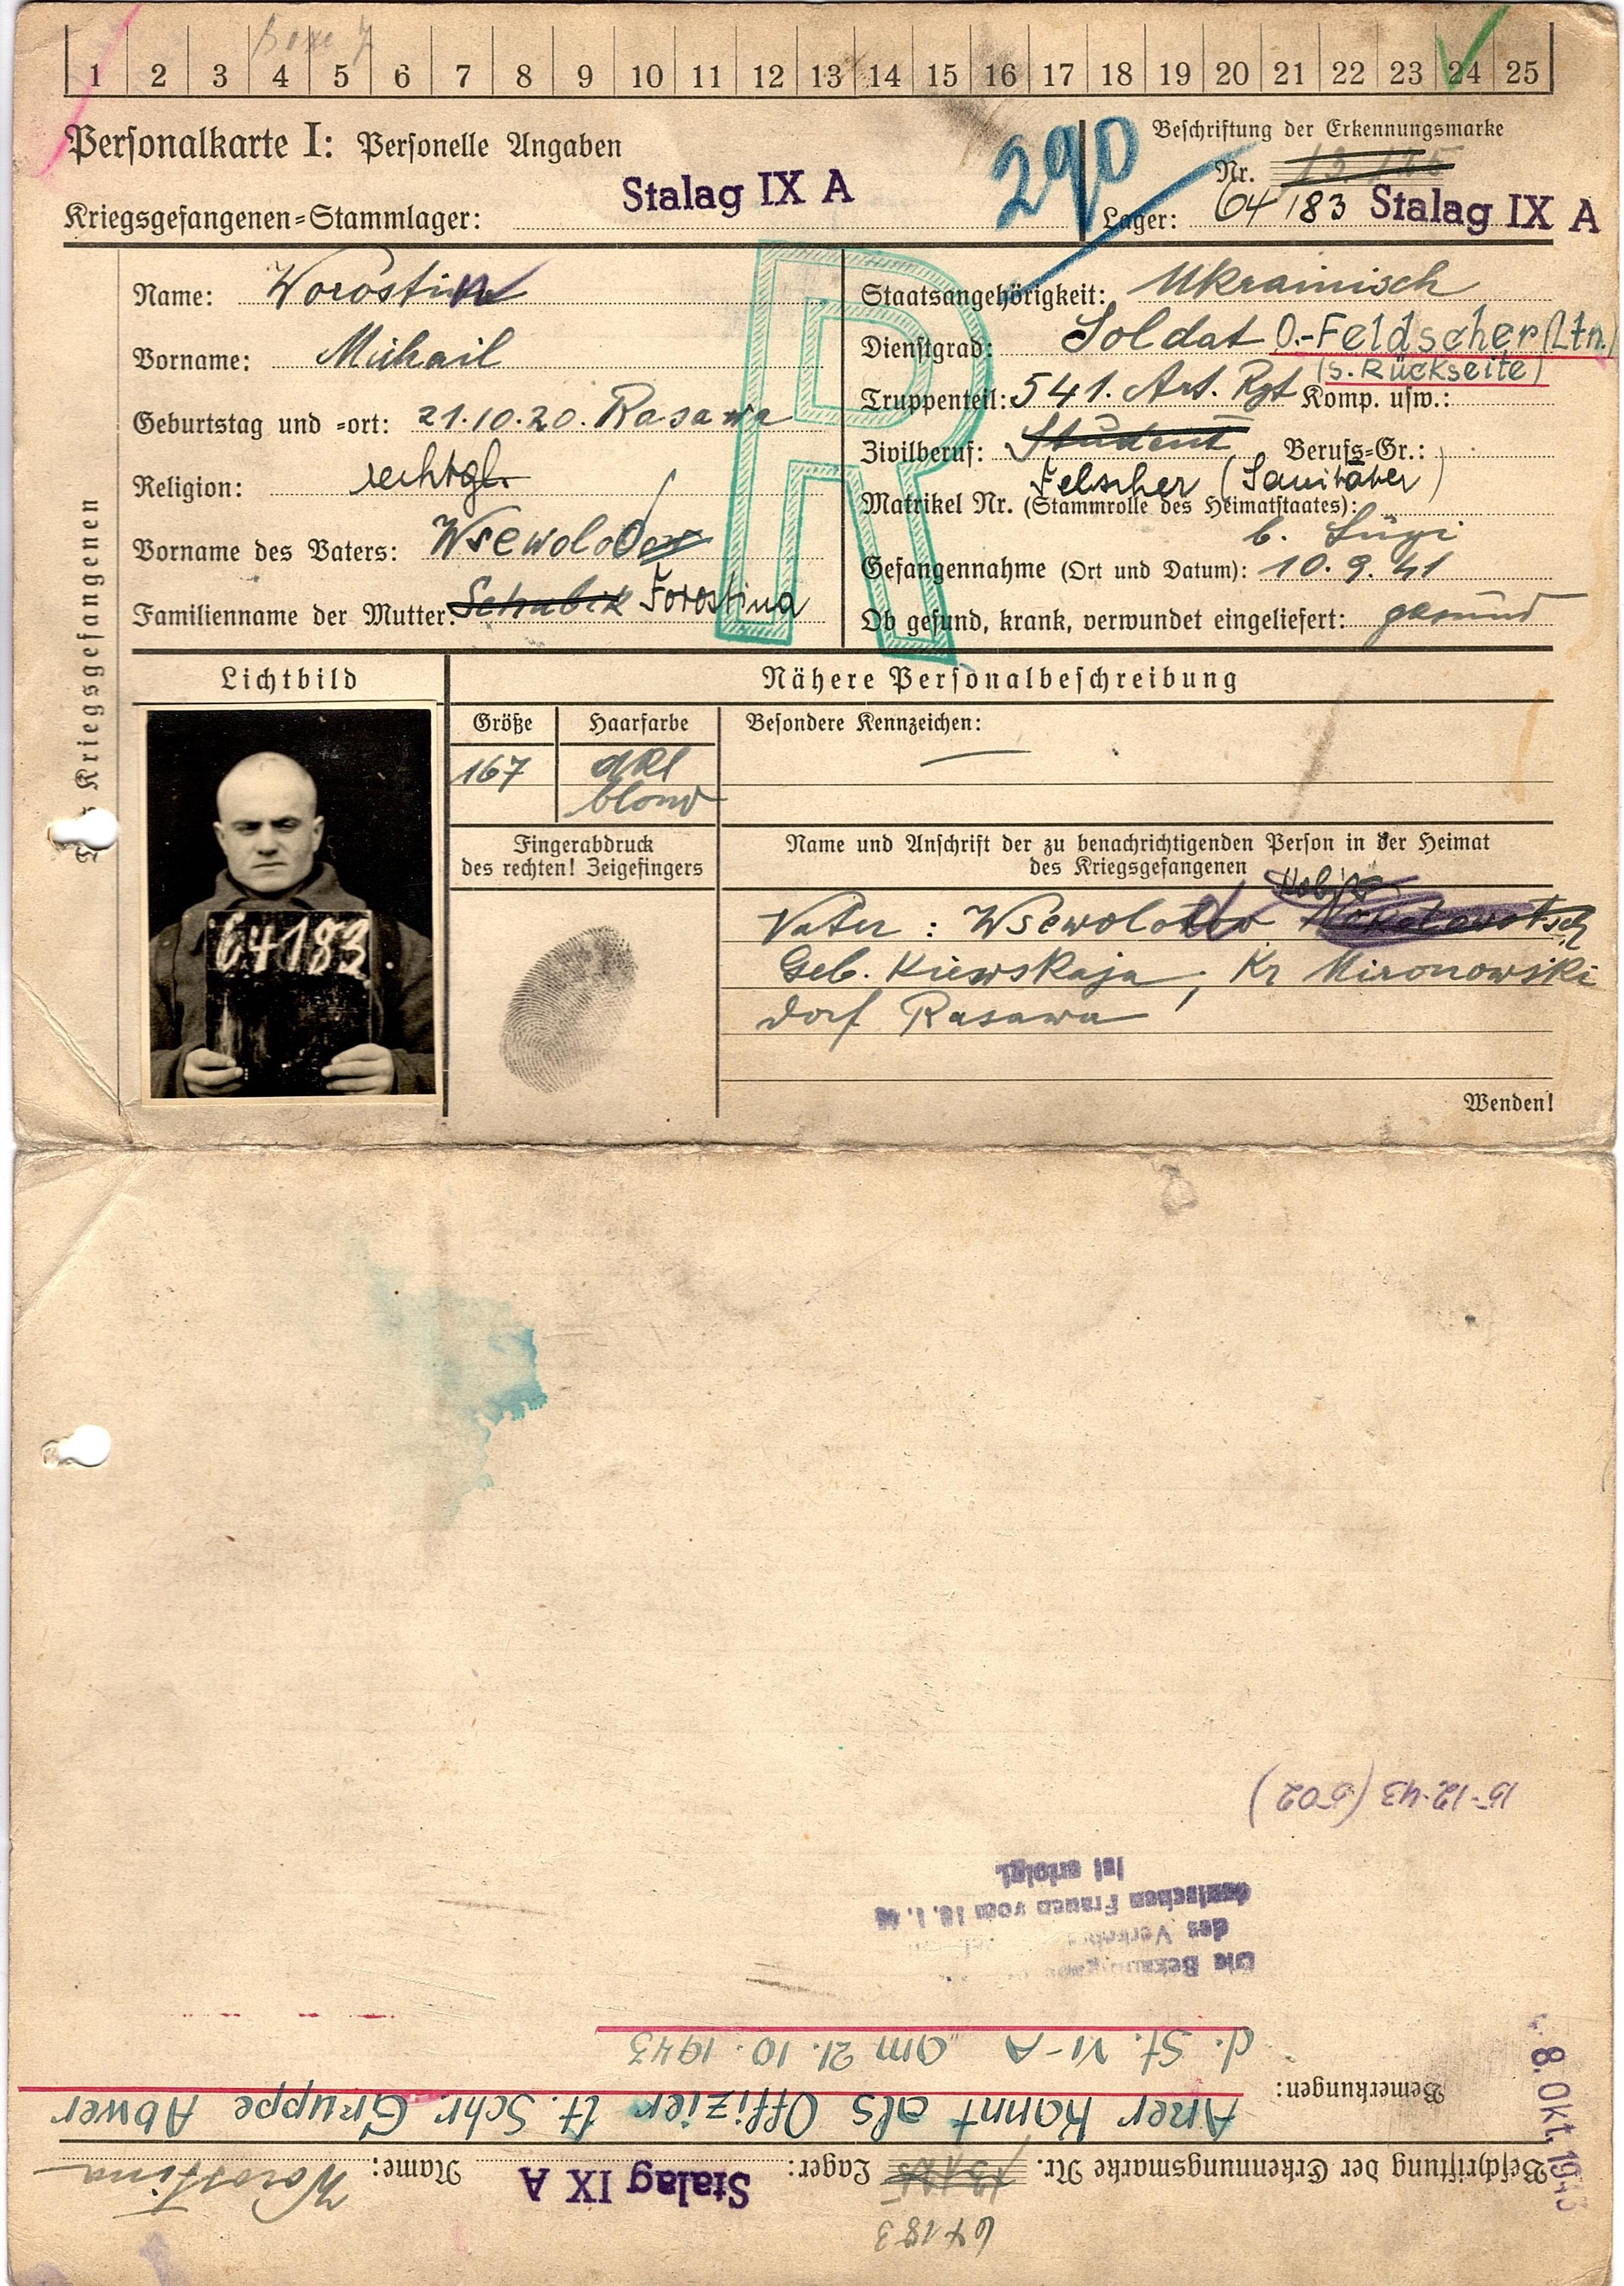 1 2 3 4 5 6 7 8 9 10 11 12 13 14 15 16 17 18 19 20 21 22 23 24 25
Personalkarte I: Personelle Angaben
290
Beschriftung der Erkennungsmarke
Nr.
Kriegsgefangenen-Stammlager: Stalag IX A
Lager: 64183 Stalag IX A
Kriegsgefangenen
Name: Worostin
Vorname: Michail
Geburtstag und -ort: 21.10.20. Rasawa
Religion: rechtgl.
Vorname des Vaters: Wsewolod
Familienname der Mutter: Schubik Forostina
R
Staatsangehörigkeit: Ukrainisch
Dienstgrad: Soldat O.-Feldscher (Ltn.)
(s. Rückseite)
Truppenteil: 541. Art. Rgt Komp. usw.:
Zivilberuf: Student Berufs-Gr.:
Felscher (Sanitäter)
Matrikel Nr. (Stammrolle des Heimatstaates):
b. Lugi
Gefangennahme (Ort und Datum): 10.9.41
Ob gesund, krank, verwundet eingeliefert: gesund
Lichtbild
64183
Nähere Personalbeschreibung
Größe Haarfarbe Besondere Kennzeichen:
167 dkl —
blond
Fingerabdruck
des rechten! Zeigefingers
Name und Anschrift der zu benachrichtigenden Person in der Heimat
des Kriegsgefangenen
Vater: Wsewolod
Geb. Kiewskaja, Kr Mironowski
dorf Rasawa
Wenden!
64183
Beschriftung der Erkennungsmarke Nr. Lager: Stalag IX A Name: Worostina
8. Okt. 1943
Bemerkungen: Anerkannt als Offizier lt. Schr. Gruppe Abwer
d. St. VI-A am 21. 10. 1943
des
deutschen Frauen vom 16.1.
ist erfolgt.
15-12-43 (502)